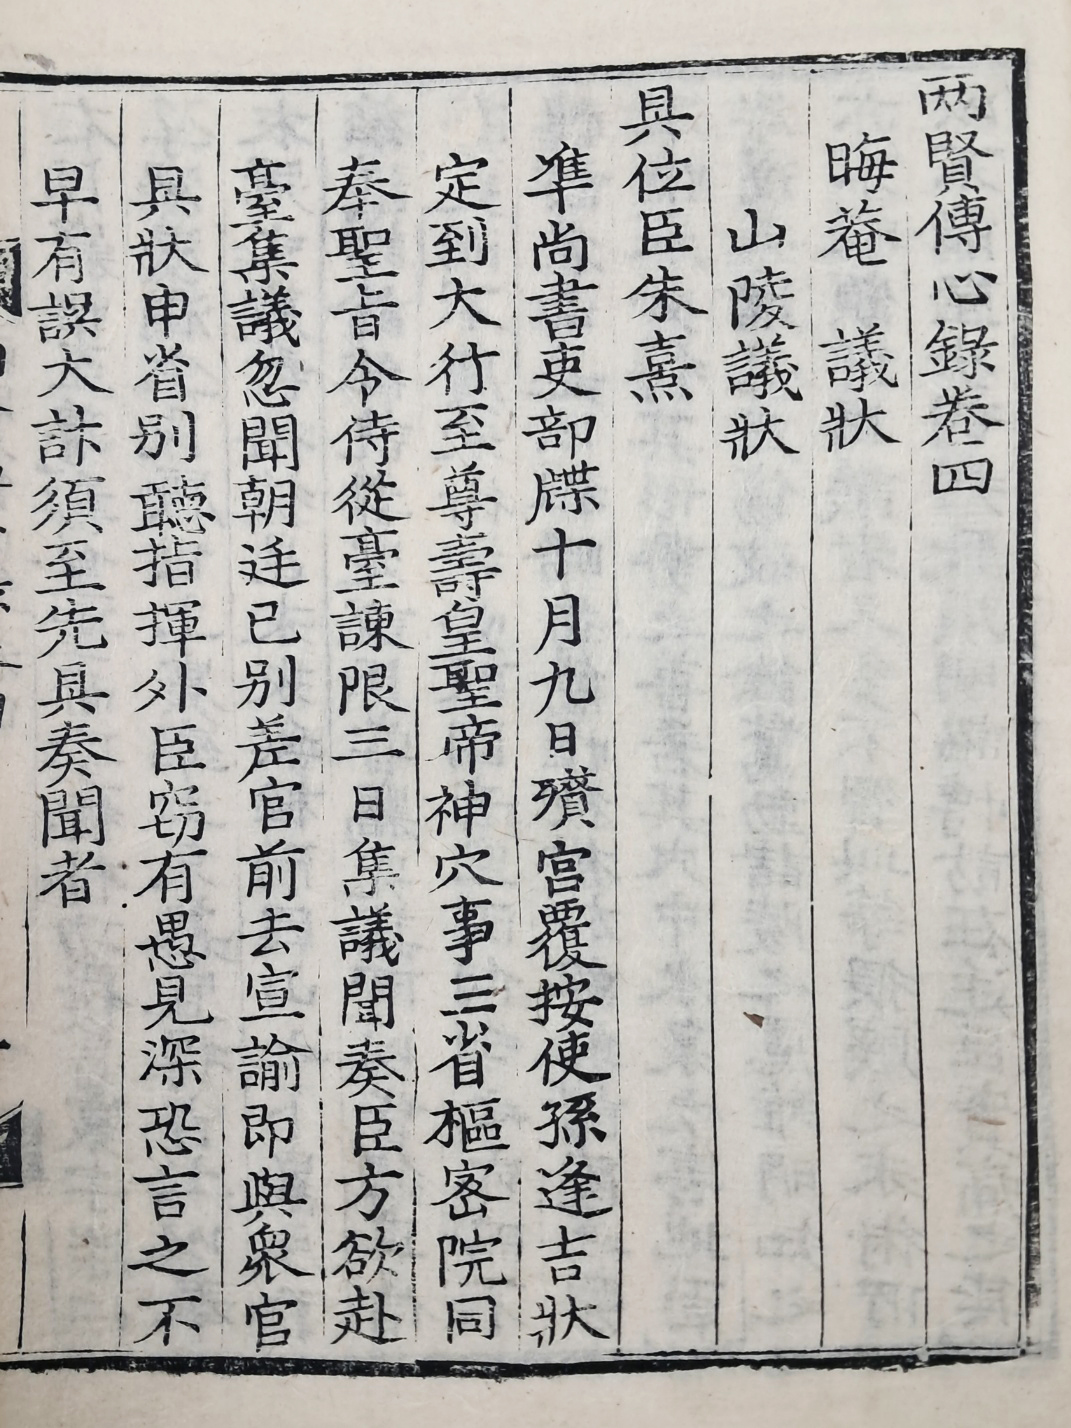 两賢傳心錄卷四
晦菴　議狀
山陵議狀
具位臣朱熹
準尚書吏部牒十月九日殯宮覆按使孫逢吉狀
定到大行至尊壽皇聖帝神穴事三省樞密院同
奉聖旨令侍從臺諫限三日集議聞奏臣方欲赴
臺集議忽聞朝廷已別差官前去宣諭即與衆官
具狀申省別聽指揮外臣窃有愚見深恐言之不
早有誤大計須至先具奏聞者